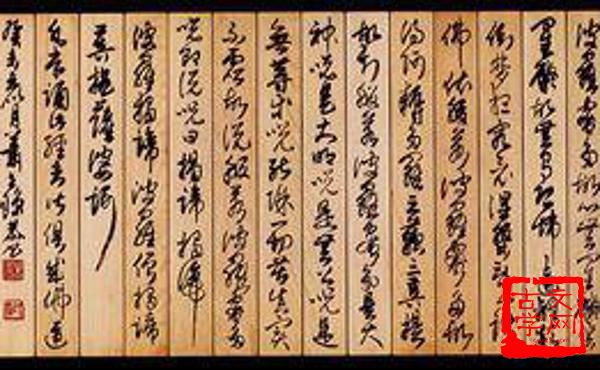 波羅蜜多故心無罣礙無
罣礙故無有恐怖遠離顛
倒夢想究竟涅槃三世諸
佛依般若波羅蜜多故
得阿耨多羅三藐三菩提
故知般若波羅蜜多是大
神咒是大明咒是無上咒是
無等等咒能除一切苦真實
不虛故說般若波羅蜜多
咒即說咒曰揭諦揭諦
波羅揭諦波羅僧揭諦
菩提薩婆訶
誦此經者皆俱成佛道
癸未月
古文学网